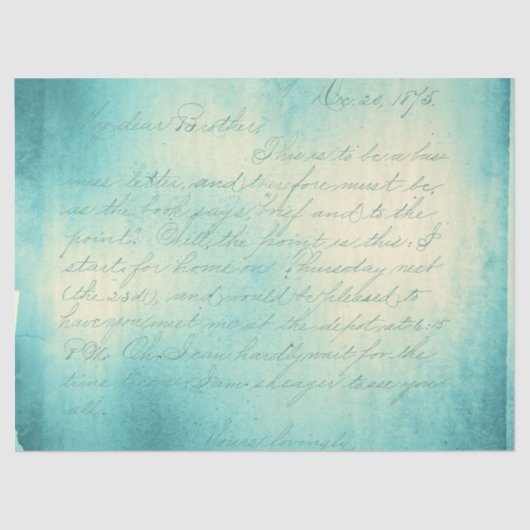 Dec. 20, 1875.
My dear Brother,
This is to be a busi
ness letter, and therefore must be,
as the book says, "brief and to the
point". Well, the point is this: I
start for home on Thursday next
(the 23d), and would be pleased to
have you meet me at the depot, at 6:15
P.M. Oh. I can hardly wait for the
time to come, I am so eager to see you
all.
Yours lovingly,